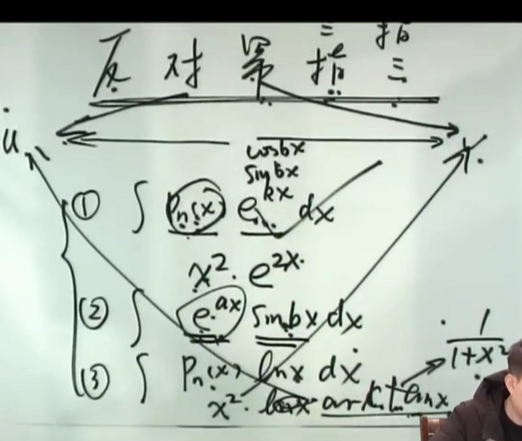 三 指
反 对 幂 指 三
u v
cosbx
sinbx
① ∫ Pn(x) e^kx dx
x²· e^2x
② ∫ e^ax sinbx dx
1/(1+x²)
③ ∫ Pn(x) lnx dx
x²· arctanx